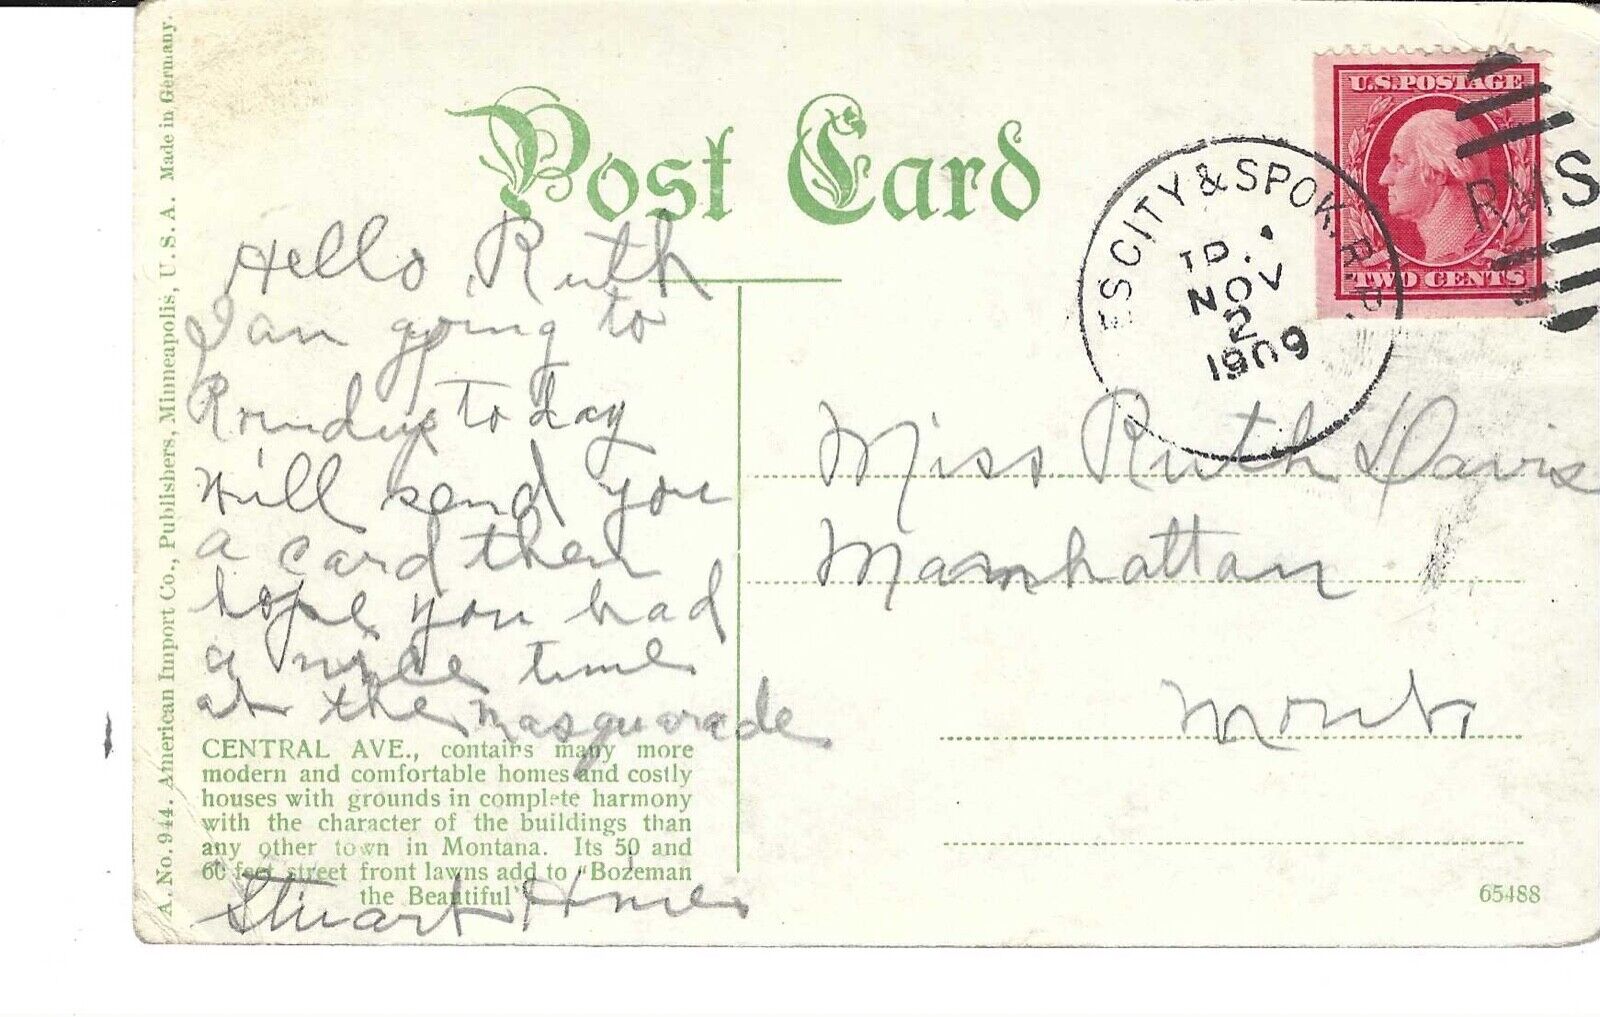 Post Card
U.S. POSTAGE
TWO CENTS
ES CITY & SPOK. R.P.
TD.
NOV
2
1909
RMS
Hello Ruth
I am going to
Roundup to day
Will send you
a card then
hope you had
a nice time
at the masquarade
Stuart
Miss Ruth Davis
Manhattan
Mont.
CENTRAL AVE., contains many more
modern and comfortable homes and costly
houses with grounds in complete harmony
with the character of the buildings than
any other town in Montana. Its 50 and
60 feet street front lawns add to "Bozeman
the Beautiful"
65488
A. No. 944. American Import Co., Publishers, Minneapolis, U. S. A. Made in Germany.